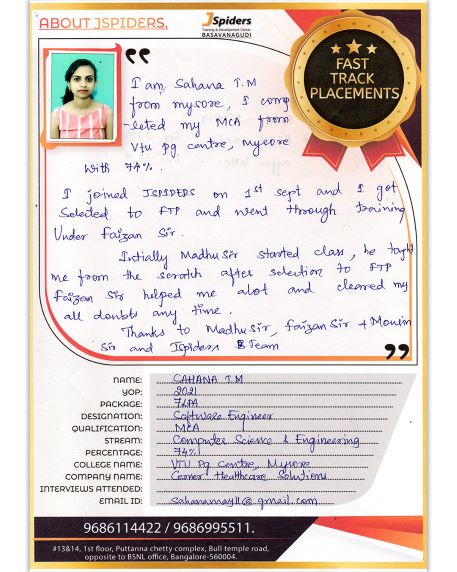 ABOUT JSPIDERS,
JSpiders
Training & Development Center
BASAVANAGUDI
FAST
TRACK
PLACEMENTS
I am Sahana T.M
from mysore, I comp
-leted my MCA from
Vtu pg centre, mysore
With 74%.
I joined JSPIDERS on 1st sept and I got
Selected to FTP and went through training
Under Faizan Sir.
Intially Madhu Sir started class, he taght
me from the scratch after selection to FTP
Faizan Sir helped me alot and cleared my
all doubts any time.
Thanks to Madhu Sir, Faizan Sir + Mounin
Sir and Jspiders Team
NAME: SAHANA T.M
YOP: 2021
PACKAGE: 7LPA
DESIGNATION: Software Engineer
QUALIFICATION: MCA
STREAM: Computer Science & Engineering
PERCENTAGE: 74%
COLLEGE NAME: VTU Pg Centre, Mysore
COMPANY NAME: Cerner Healthcare Solutions
INTERVIEWS ATTENDED:
EMAIL ID: @gmail.com
9686114422 / 9686995511.
#13&14, 1st floor, Puttanna chetty complex, Bull temple road,
opposite to BSNL office, Bangalore-560004.